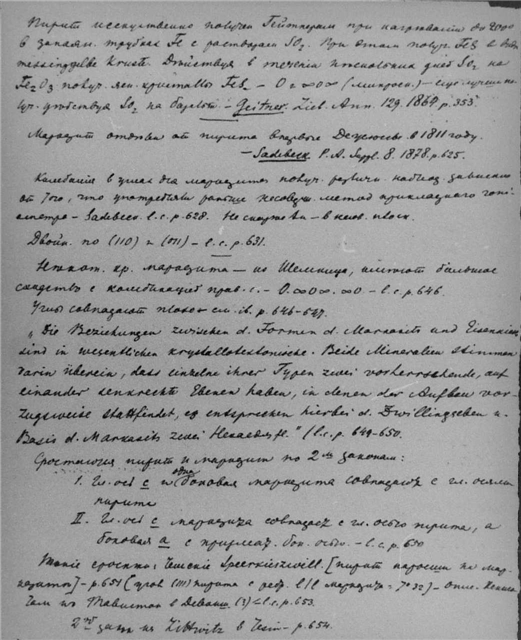 Пирит искусственно получен Гейтнером при нагревании до 200°
в запаян. трубках Fe с раствором SO₂. При этом получ. FeS₂ в виде
messinggelbe Kruste. Действуя в течении нескольких дней SO₂ на
Fe₂O₃ получ. кристаллы FeS₂ - O и ∞O∞ (микроск.) - еще лучше по-
луч. действуя SO₂ на базальт - Geitner. Lieb. Ann. 129. 1864 p. 353.
Марказит отделен от пирита впервые в 1811 году.
- Sadebeck P. A. Suppl. 8. 1878. p. 625.
Колебания в углах для марказитов получ. различн. наблюд. зависят
от того, что употребляли раньше метод прикладного гони-
ометра - Sadebeck l. c. p. 628. Не - в пл.
Двойн. по (110) и (011) - l. c. p. 631.
Некот. кр. марказита - из Шемница, имеют большое
сходство с комбинацией прав. с. - O. ∞O∞. ∞O - l. c. p. 646.
Углы совпадают см. ib. p. 646-647.
„Die Beziehungen zwischen d. Formen d. Markasits und Eisenkies
sind in wesentlichen krystallotektonische. Beide Mineralien stimmen
darin überein, dass einzelne ihrer Typen zwei vorherrschende, auf
einander senkrechte Ebenen haben, in denen der Aufbau vor-
zugsweise stattfindet, es entsprechen hierbei d. Zwillingseben u.
Basis d. Markasits zwei Hexaederfl." (l. c. p. 649-650.
Сростаются пирит и марказит по 2ум законам:
I. Гл. ось c и одна боковая марказита совпадают с гл. осями
пирита
II. Гл. ось c марказита совпадает с гл. осью пирита, а
боковая a с бок. осью. - l. c. p. 650
Такие сростки: Чешские Speerkieszwill. [пирит наросши на мар-
казит] - p. 651 [угол (111) пирита с l/l марказ. = 7°32'] -
из Тавистока в Девоне (?) - l. c. p. 653.
2ой закон из Littmitz в Чехии - p. 654.